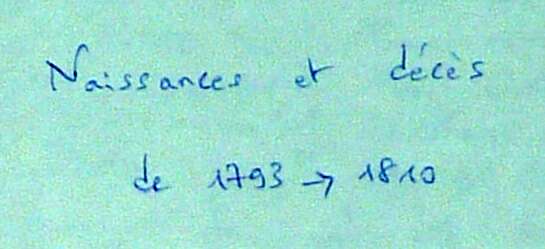 Naissances et décès
de 1793 → 1810